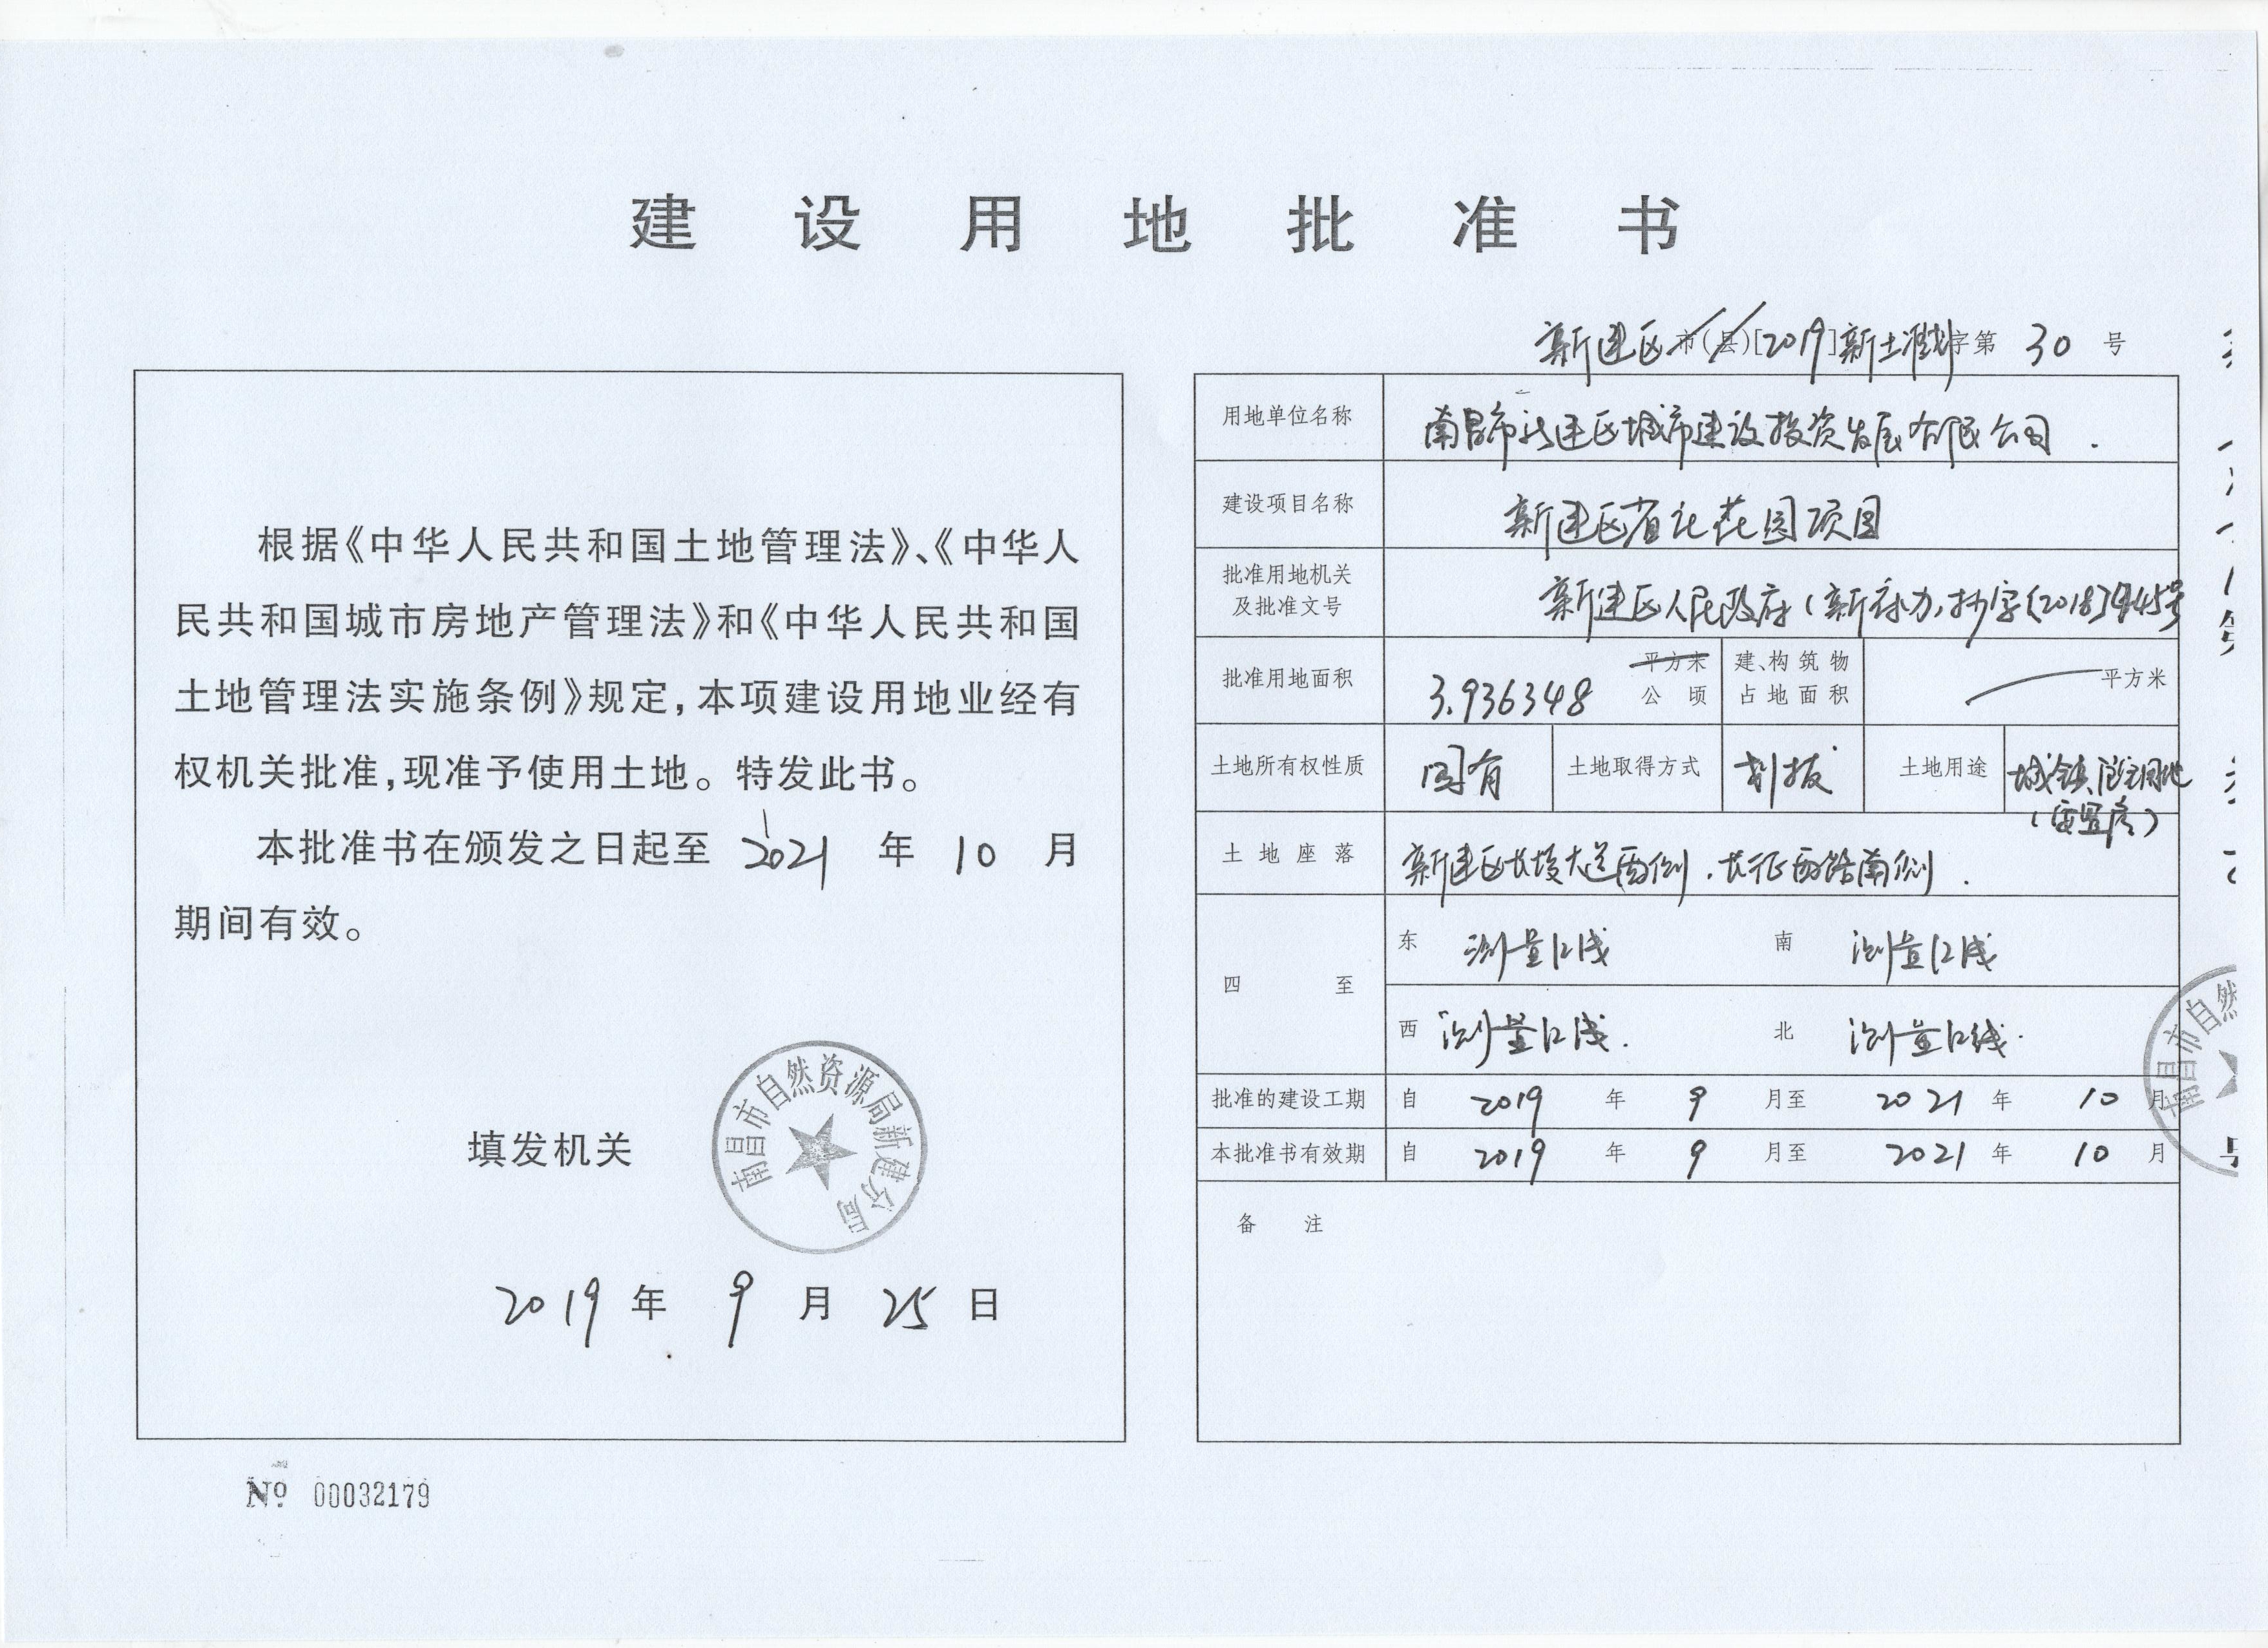 建设用地批准书
新建区市(县)[2019]新土划字第 30 号
根据《中华人民共和国土地管理法》、《中华人
民共和国城市房地产管理法》和《中华人民共和国
土地管理法实施条例》规定,本项建设用地业经有
权机关批准,现准予使用土地。特发此书。
本批准书在颁发之日起至 2021 年 10 月
期间有效。
填发机关
南昌市自然资源局新建分局
2019 年 9 月 25 日
№ 00032179
用地单位名称 南昌市新建区城市建设投资发展有限公司.
建设项目名称 新建区省记花园项目
批准用地机关
及批准文号
新建区人民政府(新府办抄字[2018]945号
批准用地面积 3.936348 平方米
公顷
建、构筑物
占地面积
平方米
土地所有权性质 国有 土地取得方式 划拨 土地用途 城镇住宅用地
(安置房)
土地座落 新建区长堎大道西侧,长征西路南侧.
四至
东 测量红线 南 测量红线
西 测量红线. 北 测量红线.
批准的建设工期 自 2019 年 9 月至 2021 年 10 月
本批准书有效期 自 2019 年 9 月至 2021 年 10 月
备注
南昌市自然